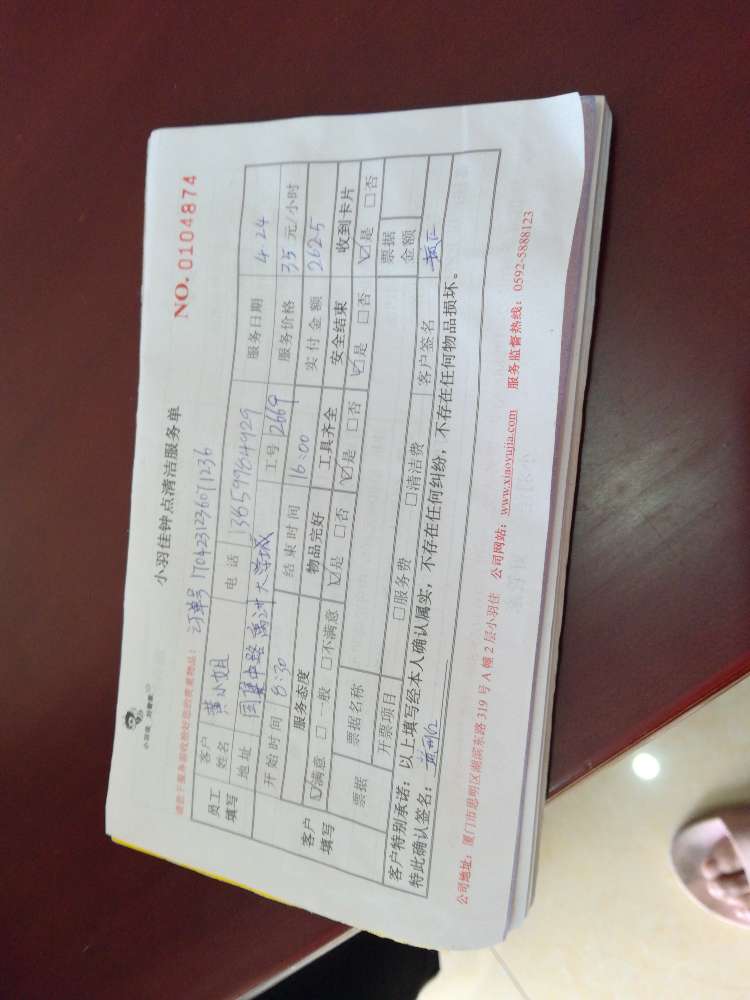 小羽佳钟点清洁服务单
NO. 0104874
订单号 170423123607 1236
员工填写 客户姓名 黄小姐 电话 13659984929 服务日期 4.24
地址 工号 2669 服务价格 35 元/小时
开始时间 8:30 结束时间 16:00 实付金额 262.5
客户填写 服务态度 物品完好 工具齐全 安全结束 收到卡片
☑满意 □一般 □不满意 ☑是 □否 ☑是 □否 ☑是 □否 ☑是 □否
票据 票据名称 票据金额
开票项目 □服务费 □清洁费 客户签名
客户特别承诺：以上填写经本人确认属实，不存在任何纠纷，不存在任何物品损坏。
特此确认签名：
公司地址：厦门市思明区湖滨东路 319 号 A 幢 2 层小羽佳 公司网站：www.xiaoyujia.com 服务监督热线：0592-5888123